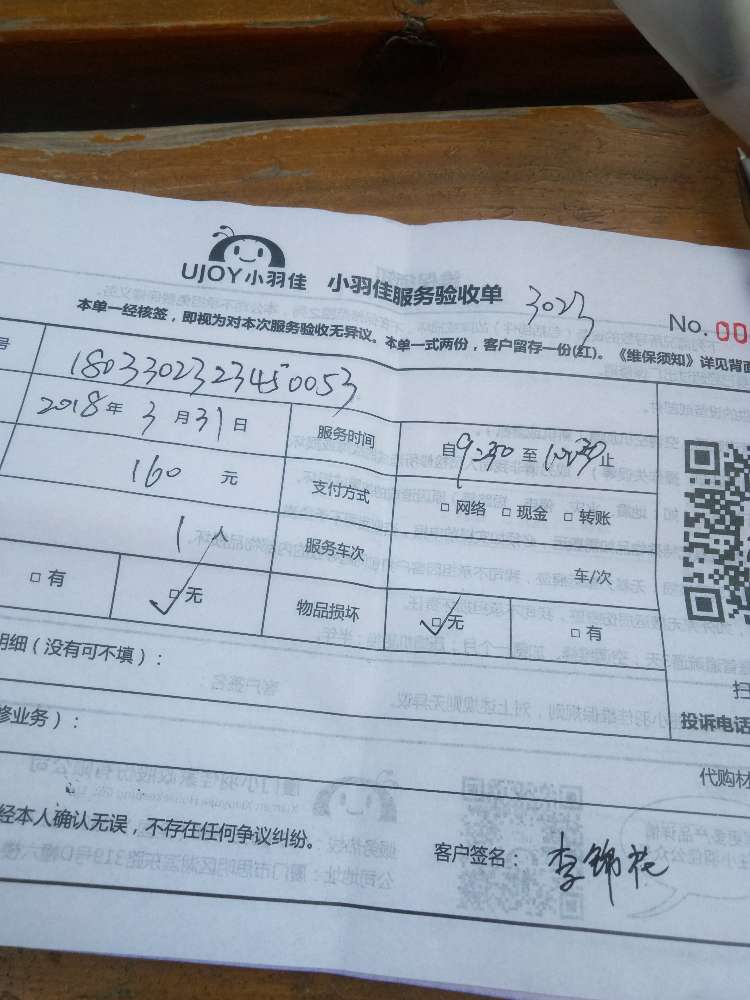 UJOY小羽佳 小羽佳服务验收单 3023
No. 00
本单一经核签，即视为对本次服务验收无异议。本单一式两份，客户留存一份(红)。《维保须知》详见背面
号 1803302323450053
2018年 3月31日 服务时间 自9:30至 止
160 元 支付方式 □网络 □现金 □转账
1 人 服务车次 车/次
□有 □无 物品损坏 □无 □有
明细（没有可不填）：
扫
投诉电话
修业务）：
代购材
经本人确认无误，不存在任何争议纠纷。
客户签名：李锦花